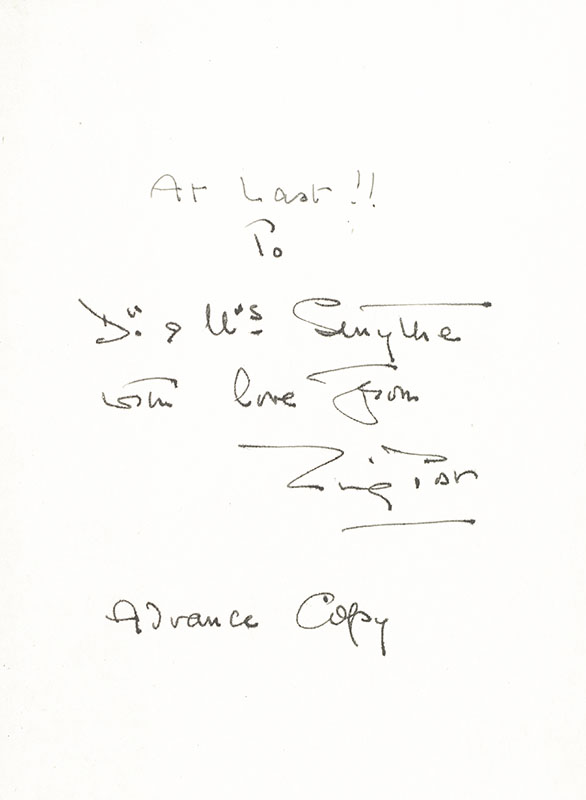 At Last!!
To
Dr. & Mrs Smythe
with love from
Advance Copy